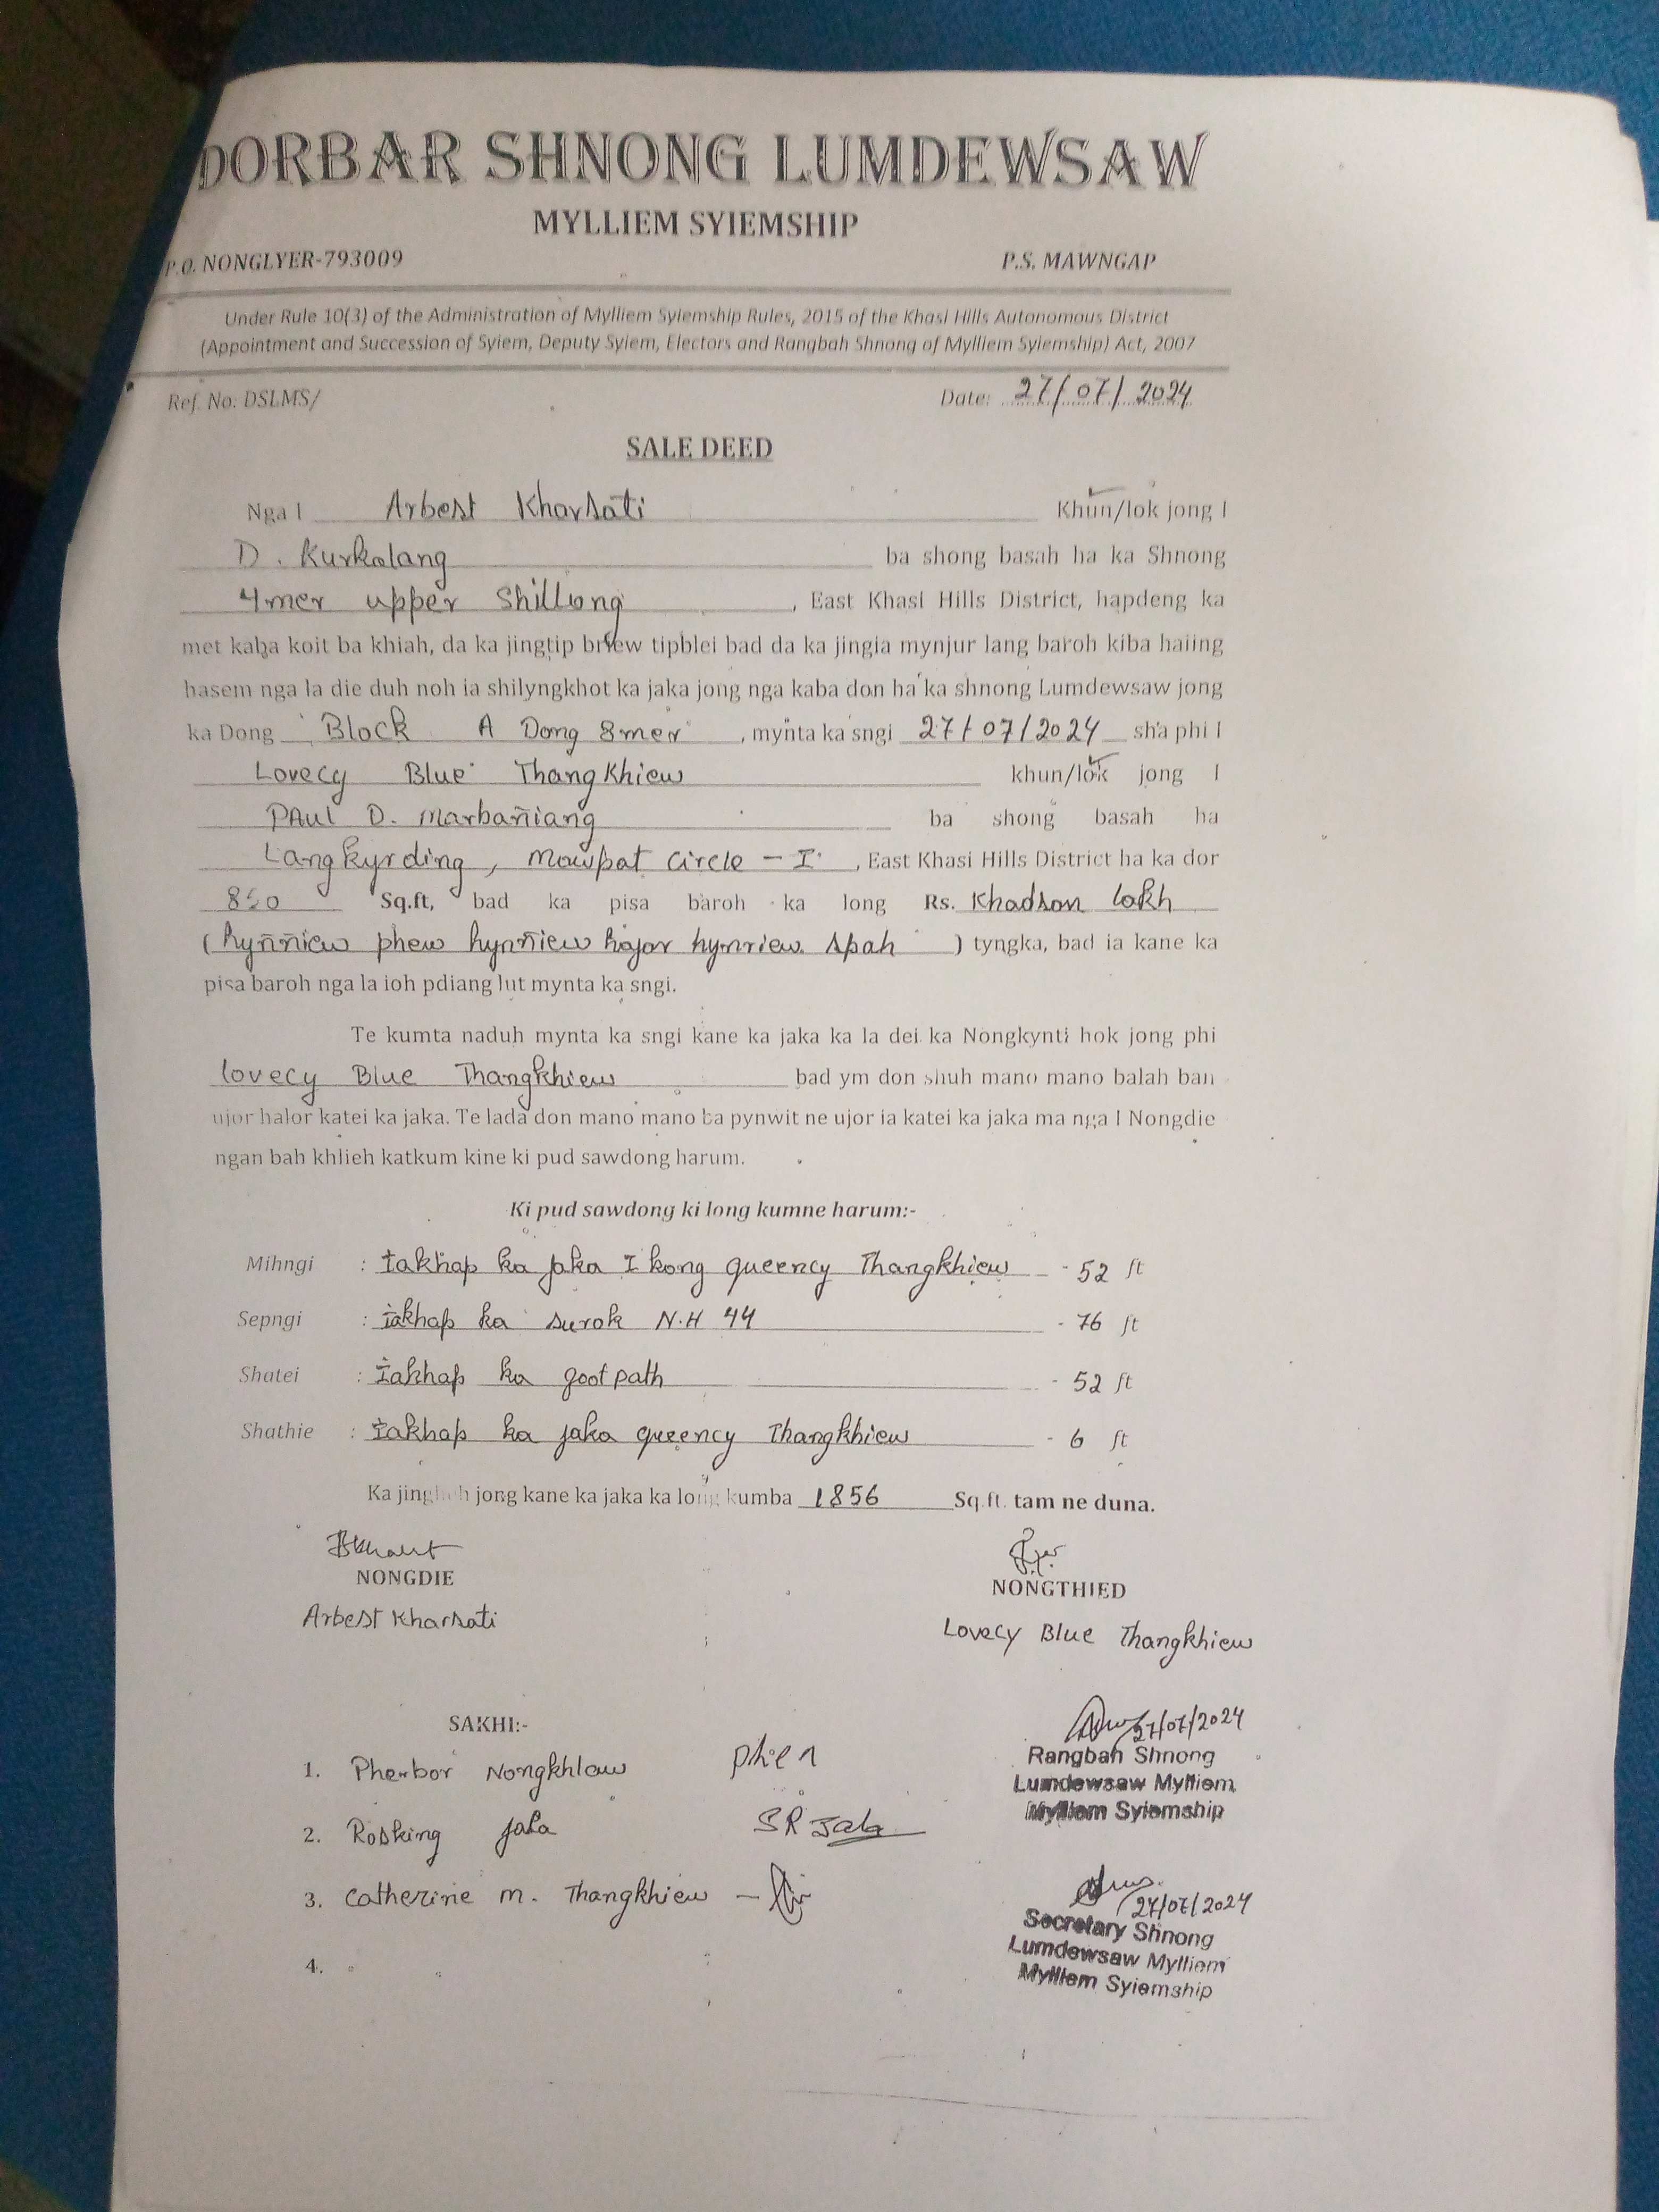 DORBAR SHNONG LUMDEWSAW
MYLLIEM SYIEMSHIP
P.O. NONGLYER-793009 P.S. MAWNGAP
Under Rule 10(3) of the Administration of Mylliem Syiemship Rules, 2015 of the Khasi Hills Autonomous District
(Appointment and Succession of Syiem, Deputy Syiem, Electors and Rangbah Shnong of Mylliem Syiemship) Act, 2007
Ref. No: DSLMS/ Date: 27/07/2024
SALE DEED
Nga I Arbest Kharsati Khun/lok jong I
D. Kurkalang ba shong basah ha ka Shnong
4mer upper Shillong, East Khasi Hills District, hapdeng ka
met kaba koit ba khiah, da ka jingtip briew tipblei bad da ka jingia mynjur lang baroh kiba haiing
hasem nga la die duh noh ia shilyngkhot ka jaka jong nga kaba don ha ka shnong Lumdewsaw jong
ka Dong Block A Dong 8mer, mynta ka sngi 27/07/2024 sha phi I
Lovecy Blue Thangkhiew khun/lok jong I
PAul D. Marbañiang ba shong basah ha
Langkyrding, Mawpat Circle - I, East Khasi Hills District ha ka dor
Sq.ft, bad ka pisa baroh ka long Rs. Khadsan lakh
(hynñiew phew hynñiew hajar hynriew spah) tyngka, bad ia kane ka
pisa baroh nga la ioh pdiang lut mynta ka sngi.
Te kumta naduh mynta ka sngi kane ka jaka ka la dei ka Nongkynti hok jong phi
lovecy Blue Thangkhiew bad ym don shuh mano mano balah ban
ujor halor katei ka jaka. Te lada don mano mano ba pynwit ne ujor ia katei ka jaka ma nga I Nongdie
ngan bah khlieh katkum kine ki pud sawdong harum.
Ki pud sawdong ki long kumne harum:-
Mihngi : ïakhap ka jaka I kong queency Thangkhiew - 52 ft
Sepngi : ïakhap ka surok N.H 44 - 76 ft
Shatei : ïakhap ka footpath - 52 ft
Shathie : ïakhap ka jaka queency Thangkhiew - 6 ft
Ka jingheh jong kane ka jaka ka long kumba 1856 Sq.ft. tam ne duna.
NONGDIE NONGTHIED
Arbest Kharsati Lovecy Blue Thangkhiew
SAKHI:-
27/07/2024
1. Pherbor Nongkhlaw
Rangbah Shnong
Lumdewsaw Mylliem
Mylliem Syiemship
2. Rosking Jala SR Jala
3. Catherine M. Thangkhiew -
27/07/2024
Secretary Shnong
Lumdewsaw Mylliem
Mylliem Syiemship
4.